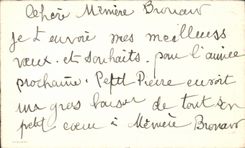 Chère Mémère Bronsard
Je t'envoie mes meilleurs
vœux et souhaits pour l'année
prochaine. Petit Pierre envoit
un gros baiser de tout son
petit cœur à Mémère